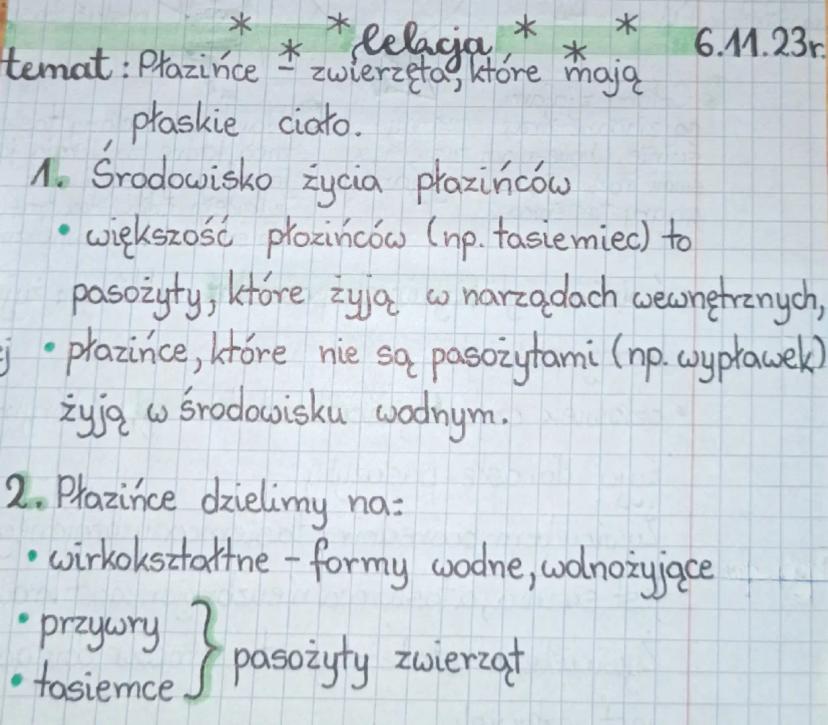 lelacja 6.11.23r.
temat: Płazińce - zwierzęta, które mają
płaskie ciało.
1. Środowisko życia płazińców
• większość płozińców (np. tasiemiec) to
pasożyty, które żyją w narządach wewnętrznych,
• płazińce, które nie są pasożytami (np. wypławek)
żyją w środowisku wodnym.
2. Płazińce dzielimy na:
• wirkokształtne - formy wodne, wolnożyjące
• przywry
• tasiemce } pasożyty zwierząt